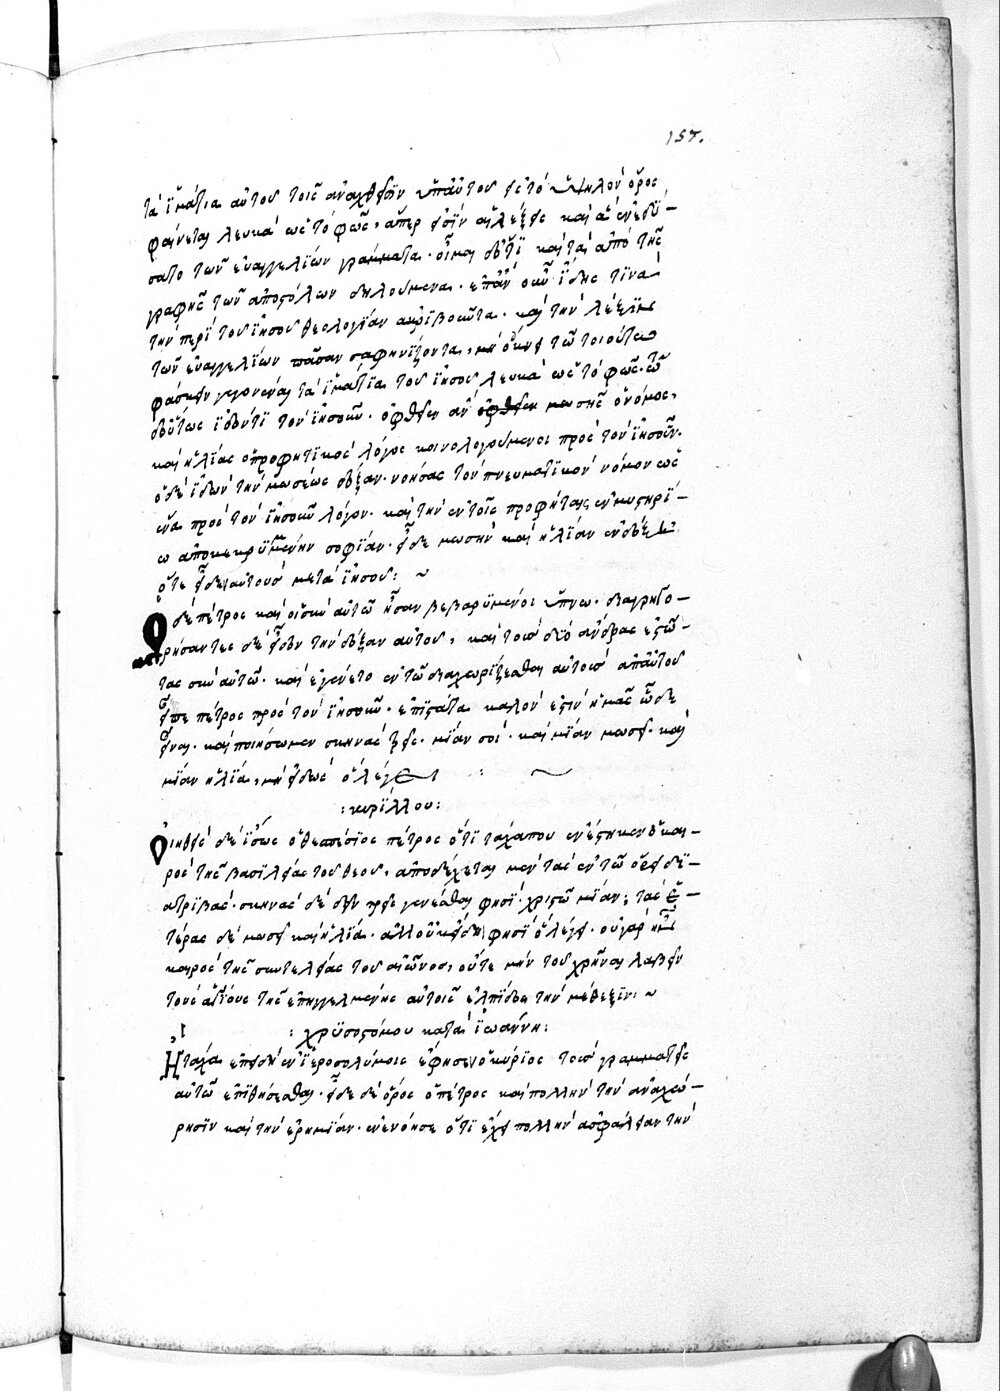 157.
τὰ ἱμάτια αὐτοῦ τοῖς ἀναχθεῖσιν ὑπ' αὐτοῦ εἰς τὸ ὑψηλὸν ὄρος
φαίνεται λευκὰ ὡς τὸ φῶς, ἅπερ εἰσὶν αἱ λέξεις καὶ ἃ ἐνεδύ-
σατο τῶν εὐαγγελίων γράμματα. οἶμαι δ' ὅτι καὶ τὰ ἀπὸ τῆς
γραφῆς τῶν ἀποστόλων δηλούμενα. ἐπὰν οὖν ἴδης τινὰ
τὴν περὶ τοῦ ἰησοῦ θεολογίαν ἀκριβοῦντα. καὶ τὴν λέξιν
τῶν εὐαγγελίων πᾶσαν σαφηνίζοντα, μὴ ὄκνει τῶ τοιούτω
φάσκειν γεγονέναι τὰ ἱμάτια τοῦ ἰησοῦ λευκὰ ὡς τὸ φῶς. τῶ
οὕτως ἰδόντι τὸν ἰησοῦν. ὤφθησαν μωσῆς ὁ νόμος,
καὶ ἠλίας ὁ προφητικὸς λόγος κοινολογούμενοι πρὸς τὸν ἰησοῦν.
ὁ δὲ ἰδὼν τὴν μωσέως δόξαν. νοήσας τὸν πνευματικὸν νόμον ὡς
ἕνα πρὸς τὸν ἰησοῦν λόγον. καὶ τὴν ἐν τοῖς προφήταις ἐν μυστηρί-
ω ἀποκεκρυμμένην σοφίαν. εἶδε μωσῆν καὶ ἠλίαν ἐν δόξη
ὅτε εἶδεν αὐτοὺς μετὰ ἰησοῦ: ~
Ὁ δὲ πέτρος καὶ οἱ σὺν αὐτῶ ἦσαν βεβαρυμένοι ὕπνω. διαγρηγο-
ρήσαντες δὲ εἶδον τὴν δόξαν αὐτοῦ, καὶ τοὺς δύο ἄνδρας ἑστῶ-
τας σὺν αὐτῶ. καὶ ἐγένετο ἐν τῶ διαχωρίζεσθαι αὐτοὺς ἀπ' αὐτοῦ
εἶπε πέτρος πρὸς τὸν ἰησοῦν. ἐπιστάτα καλόν ἐστιν ἡμᾶς ὧδε
εἶναι. καὶ ποιήσωμεν σκηνὰς τρεῖς. μίαν σοὶ. καὶ μίαν μωσεῖ. καὶ
μίαν ἠλία, μὴ εἰδὼς ὃ λέγει : ~
: κυρίλλου:
Οἰηθεὶς δὲ ἴσως ὁ θεσπέσιος πέτρος ὅτι τάχα που ἐνέστηκεν ὁ και-
ρὸς τῆς βασιλείας τοῦ θεοῦ, ἀποδέχεται μὲν τὰς ἐν τῶ ὄρει δι-
ατριβάς. σκηνὰς δὲ δεῖν τρεῖς γενέσθαι φησί. χριστῶ μίαν; τὰς ἑ-
τέρας δὲ μωσεῖ καὶ ἠλία. ἀλλ' οὐκ ἤδει φησὶ ὃ λέγει. οὐ γὰρ ἦν
καιρὸς τῆς συντελείας τοῦ αἰῶνος, οὔτε μὴν τοῦ χρῆναι λαβεῖν
τοὺς ἁγίους τῆς ἐπηγγελμένης αὐτοῖς ἐλπίδος τὴν μέθεξιν: ~
: χρυσοστόμου κατὰ ἰωάννη:
Ἢ τάχα ἐπειδὴ ἐν ἱεροσολύμοις ἔφησεν ὁ κύριος τοὺς γραμματεῖς
αὐτῶ ἐπιθήσεσθαι. εἶδε δὲ ὄρος ὁ πέτρος καὶ πολλὴν τὴν ἀναχώ-
ρησιν καὶ τὴν ἐρημίαν. ἐνενόησε ὅτι ἔχει πολλὴν ἀσφάλειαν τὴν